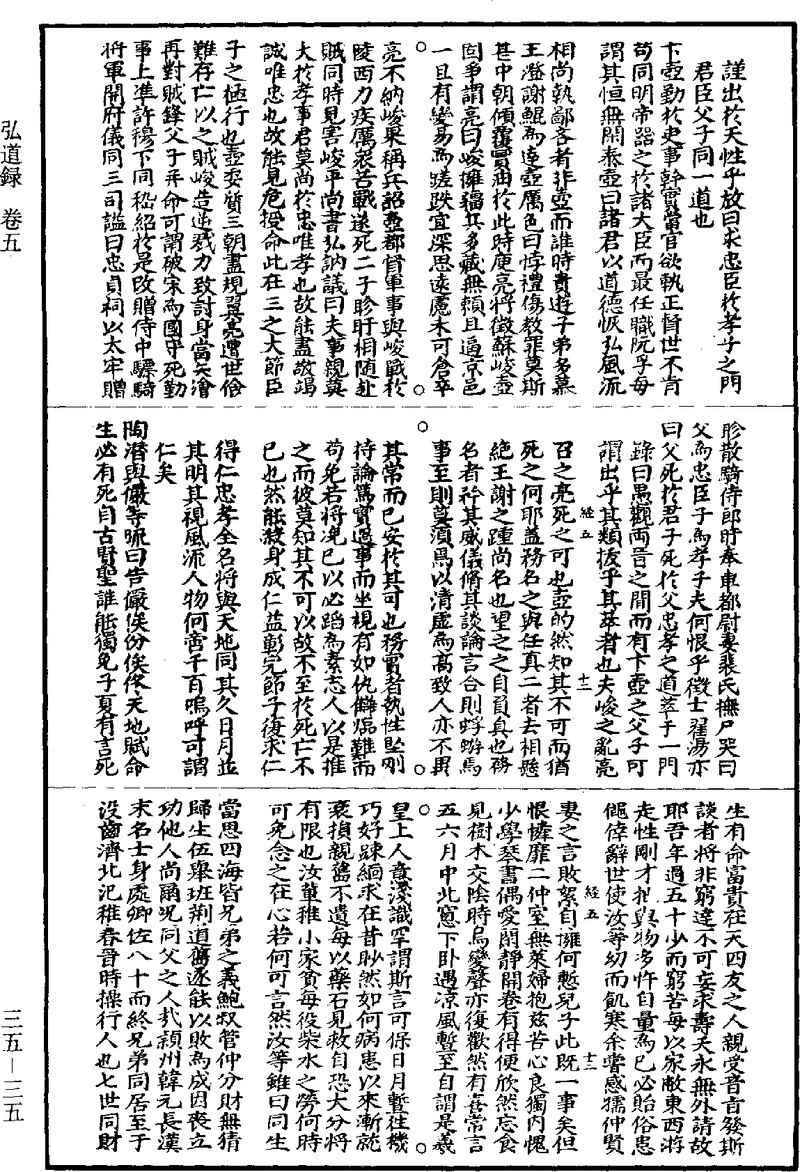 謹出於天性乎故曰求忠臣於孝子之門
君臣父子同一道也
卞壺勤於吏事幹實當官欲執正督世不肯
苟同明帝器之於諸大臣而最任職阮孚每
謂其恒無閑泰壺曰諸君以道德恢弘風流
相尚執鄙吝者非壺而誰時貴遊子弟多慕
王澄謝鯤為達壺厲色曰悖禮傷教罪莫斯
甚中朝傾覆實由於此時庾亮將徵蘇峻壺
固爭謂亮曰峻擁彊兵多藏無賴且逼京邑
一旦有變易為蹉跌宜深思遠慮未可倉卒
亮不納峻果稱兵詔壺都督軍事與峻戰於
陵西力疾厲衆苦戰遂死二子昣盱相隨赴
賊同時見害峻平尚書弘訥議曰夫事親莫
大於孝事君莫尚於忠唯孝也故能盡敬竭
誠唯忠也故能見危授命此在三之大節臣
子之極行也壺委質三朝盡規翼亮遭世險
難存亡以之賊峻造逆戮力致討身當矢旝
再對賊鋒父子并命可謂破家為國守死勤
事上準許穆下同嵇紹於是改贈侍中驃騎
將軍開府儀同三司謚曰忠貞祠以太牢贈
昣散騎侍郎盱奉車都尉妻裴氏撫尸哭曰
父為忠臣子為孝子夫何恨乎徵士翟湯亦
曰父死於君子死於父忠孝之道萃于一門
錄曰愚觀兩晉之間而有卞壺之父子可
謂出乎其類拔乎其萃者也夫峻之亂亮
経五 十二
召之亮死之可也壺的然知其不可而猶
死之何耶蓋務名之與任真二者去相懸
絕王謝之踵尚名也望之之自負真也務
名者矜其威儀脩其談論言合則蜉蝣焉
事至則莫須焉以清虛為高致人亦不畀
其常而已安於其可也務實者執性堅剛
持論篤實遇事而坐視有如仇讎嫉難而
苟免若將浼已以必蹈為素志人以是推
之而彼莫知其不可以故不至於死亡不
已也然能殺身成仁益彰完節子復求仁
得仁忠孝全名將與天地同其久日月並
其明其視風流人物何啻千百嗚呼可謂
仁矣
陶潛與儼等疏曰告儼俟份佚佟天地賦命
生必有死自古賢聖誰能獨免子夏有言死
生有命富貴在天四友之人親受音旨發斯
談者將非窮達不可妄求壽夭永無外請故
耶吾年過五十少而窮苦每以家敝東西游
走性剛才拙與物多忤自量為己必貽俗患
僶俛辭世使汝等幼而飢寒余嘗感孺仲賢
経五 十三
妻之言敗絮自擁何慙兒子此既一事矣但
恨隣靡二仲室無萊婦抱茲苦心良獨內愧
少學琴書偶愛閑靜開卷有得便欣然忘食
見樹木交陰時鳥變聲亦復歡然有喜常言
五六月中北窓下臥遇凉風暫至自謂是羲
皇上人意淺識罕謂斯言可保日月暫往機
巧好踈緬求在昔眇然如何病患以來漸就
衰損親舊不遺每以藥石見救自恐大分將
有限也汝輩稚小家貧每役柴水之勞何時
可免念之在心若何可言然汝等雖曰同生
當思四海皆兄弟之義鮑叔管仲分財無猜
歸生伍舉班荊道舊遂能以敗為成因喪立
功他人尚爾況同父之人哉潁州韓元長漢
末名士身處卿佐八十而終兄弟同居至于
沒齒濟北氾稚春晉時操行人也七世同財
弘道録 卷五
三五—三五